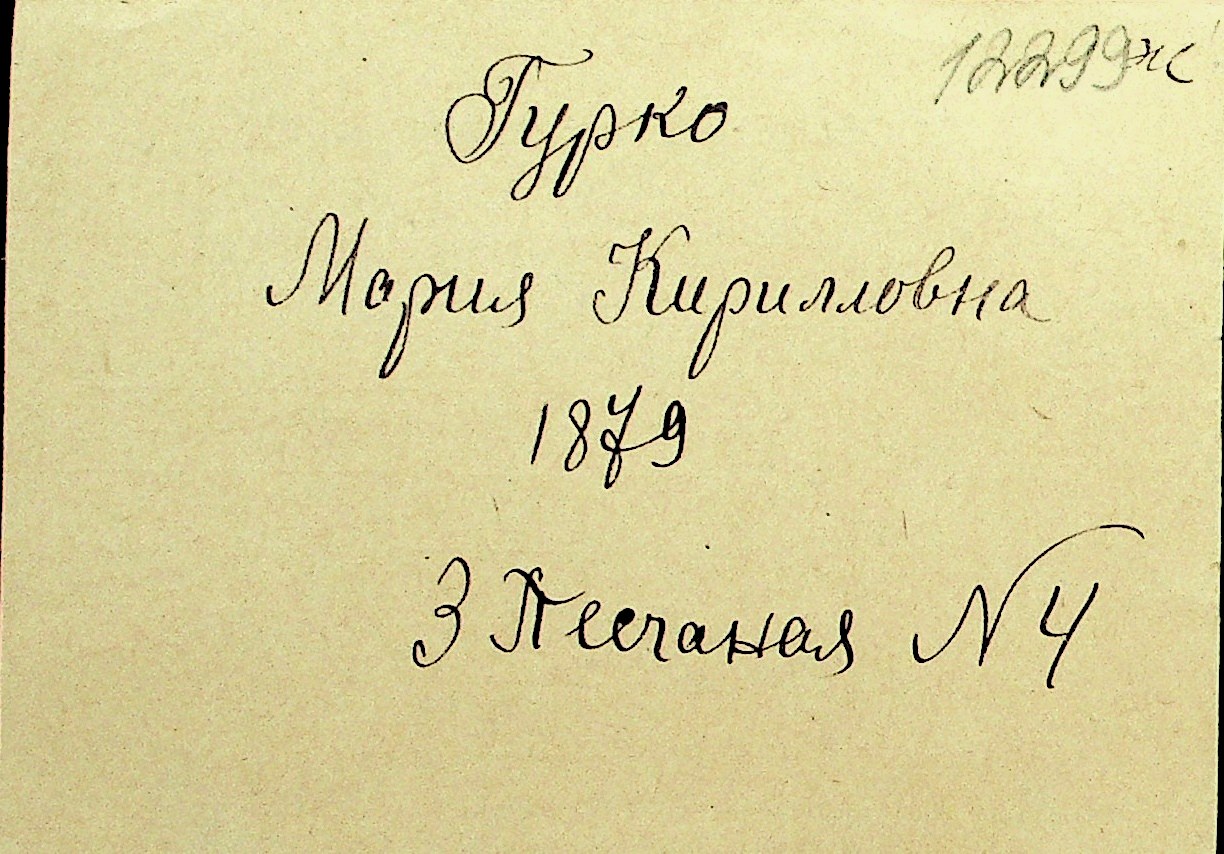 12299ж
Гурко
Мария Кирилловна
1879
3 Песчаная N 4